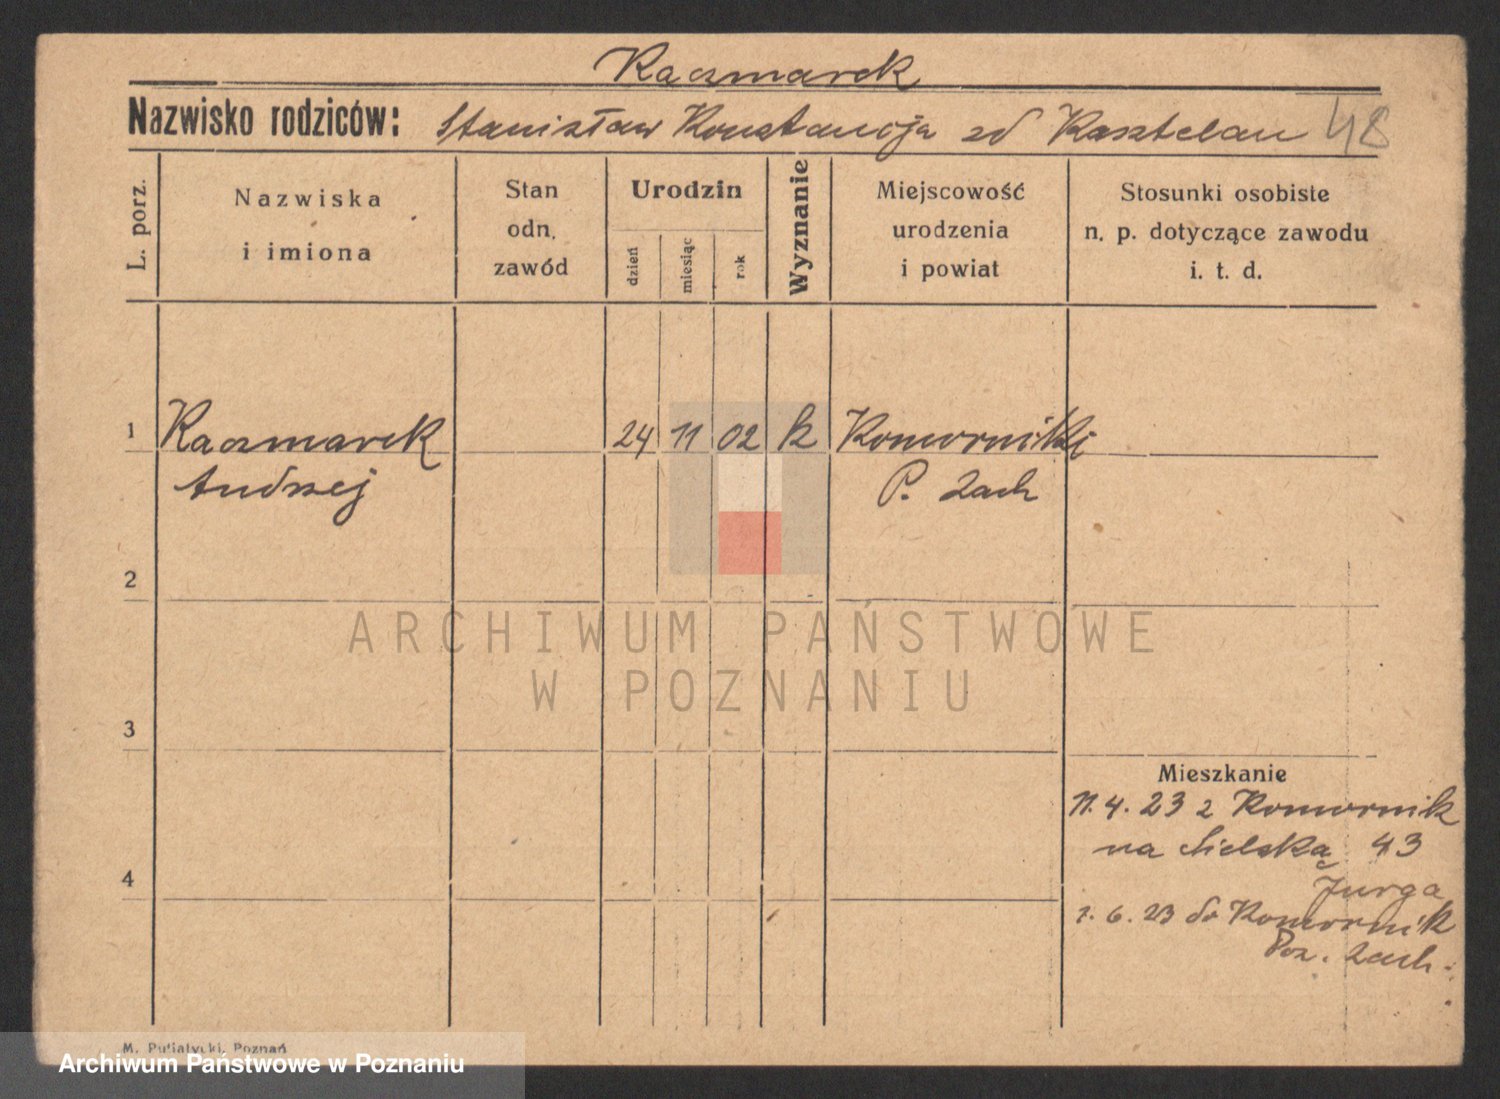 Kaczmarek
Nazwisko rodziców: Stanisław Konstancja zd Kasztelan 48
L. porz.
Nazwiska
i imiona
Stan
odn.
zawód
Urodzin
dzień
miesiąc
rok
Wyznanie
Miejscowość
urodzenia
i powiat
Stosunki osobiste
n. p. dotyczące zawodu
i. t. d.
1 Kaczmarek 24 11 02 k Komorniki
Andrzej P. Zach
2
ARCHIWUM PAŃSTWOWE
W POZNANIU
3
Mieszkanie
11. 4. 23 z Komornik
na Sielską 43
4
Jurga
1. 6. 23 do Komornik
Poz. Zach.
M. Putiatycki, Poznań
Archiwum Państwowe w Poznaniu